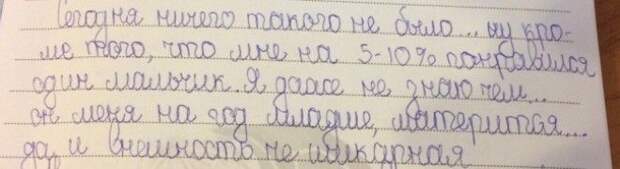 Сегодня ничего такого не было... ну кро-
ме того, что мне на 5-10% понравился
один мальчик. Я даже не знаю чем...
он меня на год младше, матерится...
да и внешность не шикарная